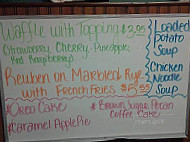 Waffle with Topping $3.95
(Strawberry, Cherry, Pineapple,
And Raspberry)
Reuben on Marbleal Rye
with French Fries $5.95
*Oreo Cake
*Caramel Apple Pie
*Brown Sugar Pecan
Coffee Cake
Loaded
Potato
Soup
Chicken
Noodle
Soup